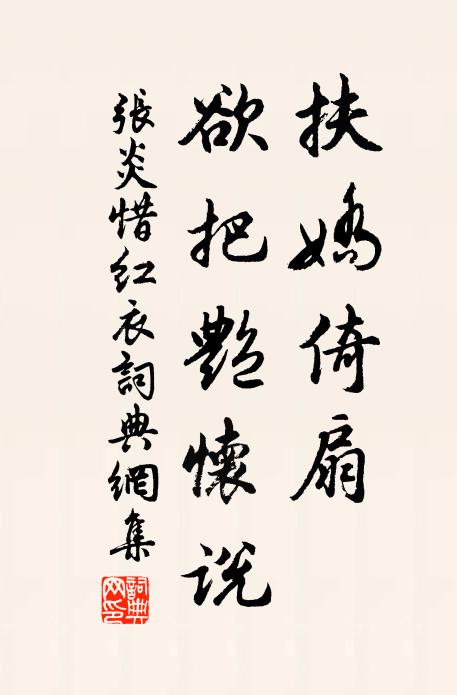 扶嬌倚扇
欲把艷懷說
張炎惜紅衣詞典網集
詞典網印